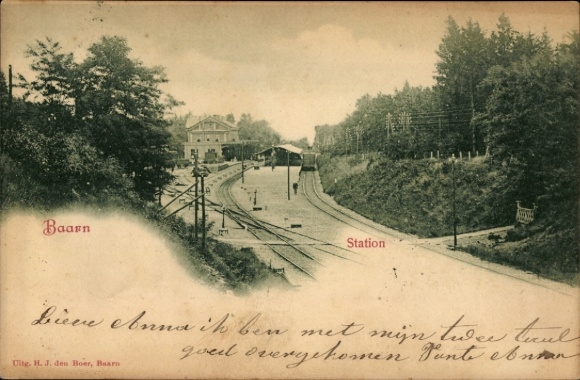 Baarn
Station
Lieve Anna ik ben met mijn
goed overgekomen Tante Anna
Uitg. H. J. den Boer, Baarn